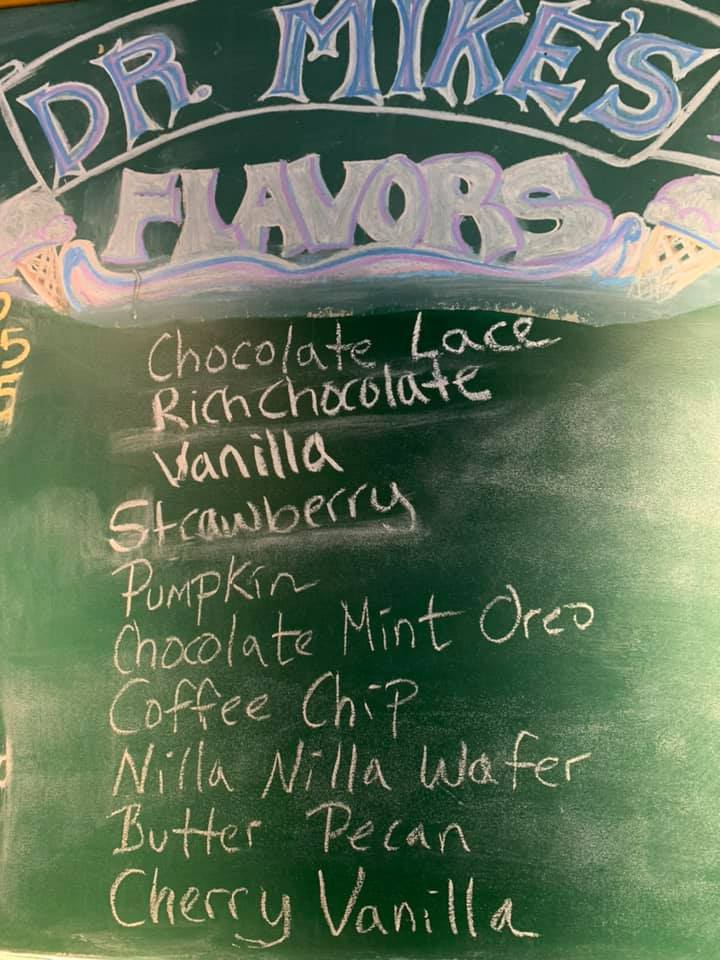 DR. MIKE'S
FLAVORS
Chocolate Lace
Rich Chocolate
Vanilla
Strawberry
Pumpkin
Chocolate Mint Oreo
Coffee Chip
Nilla Nilla Wafer
Butter Pecan
Cherry Vanilla